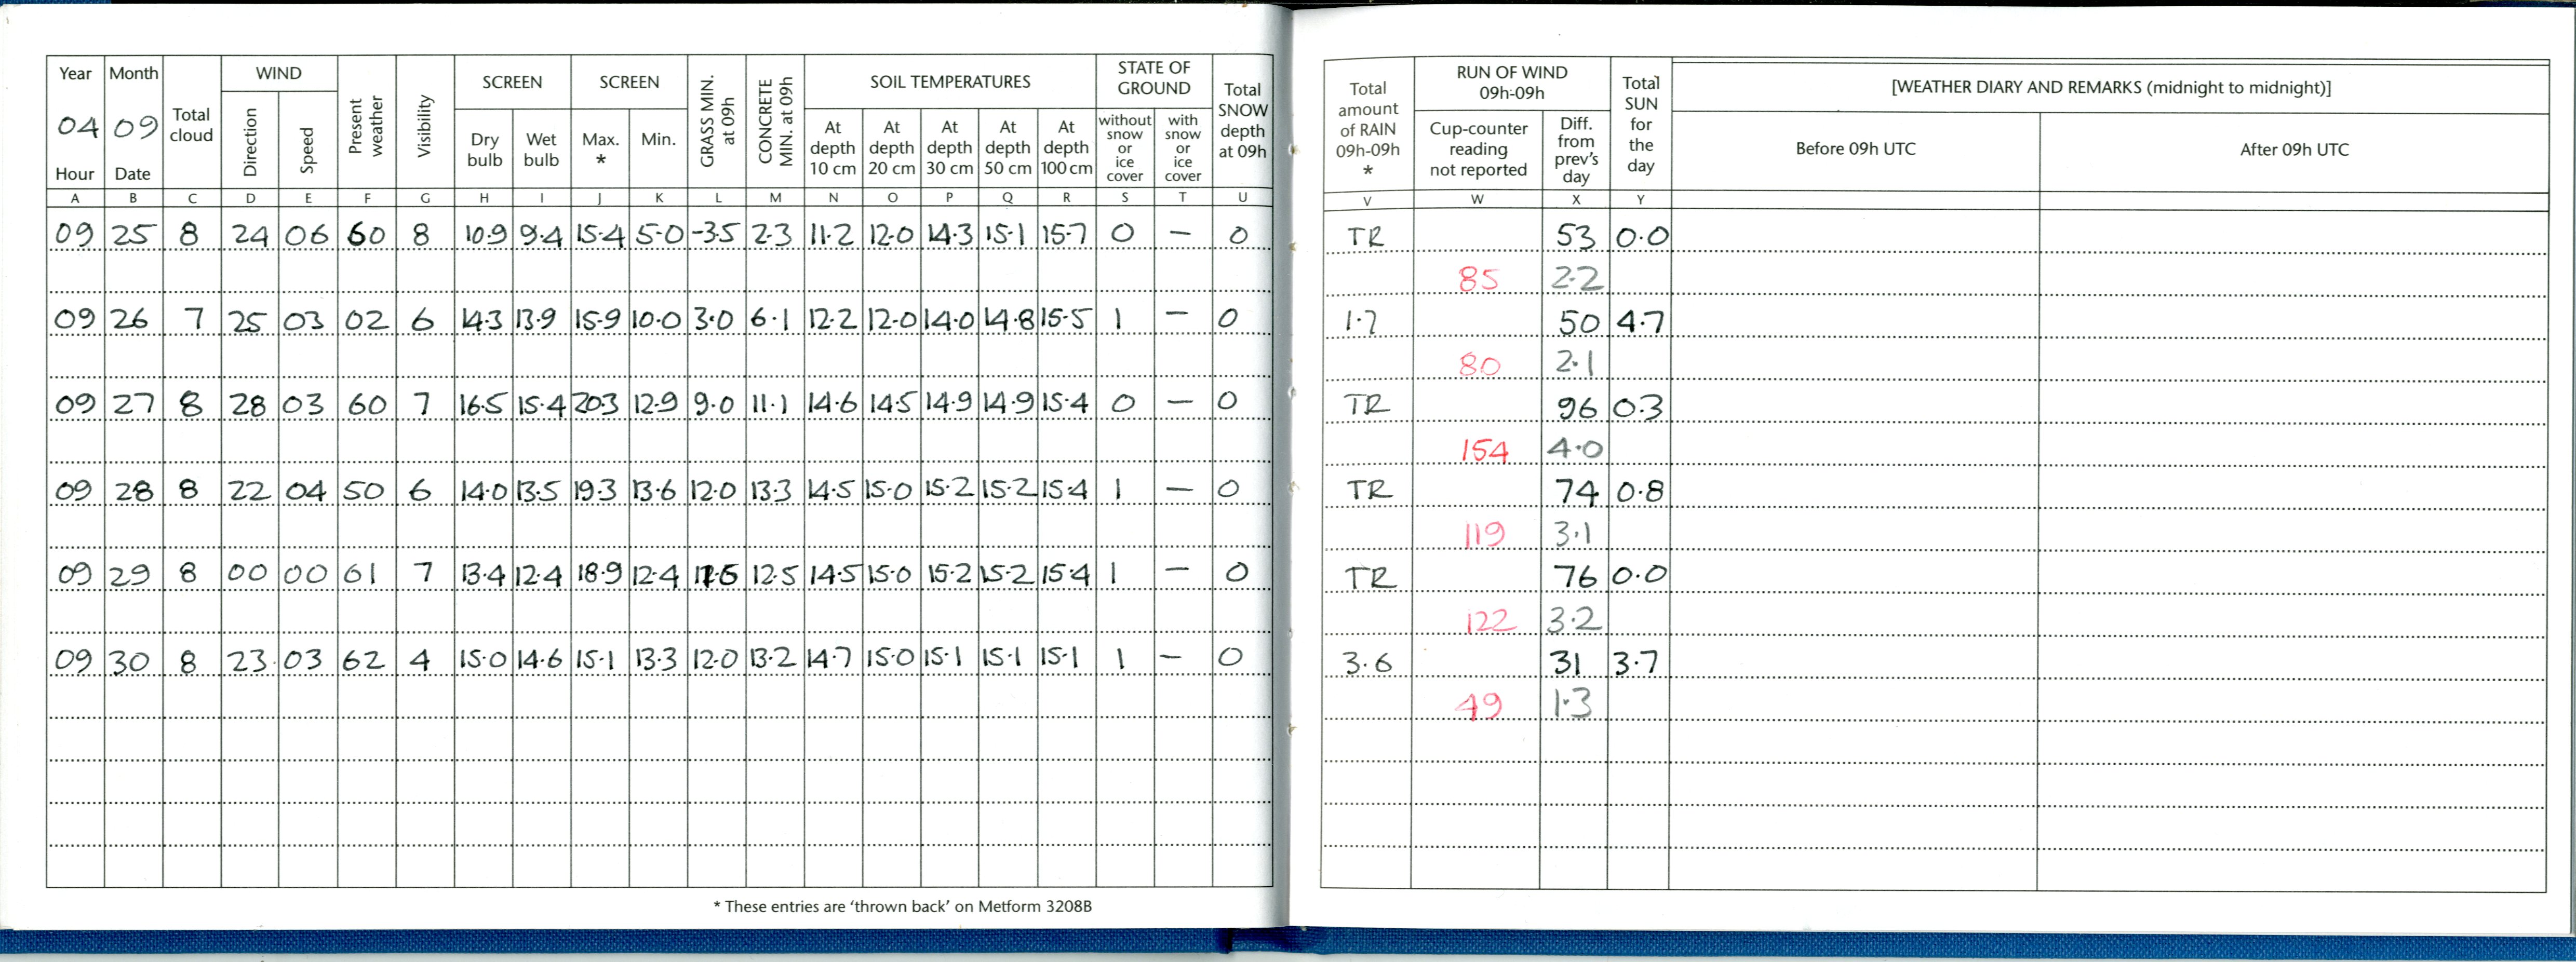 Year Month Total cloud WIND Present weather Visibility SCREEN SCREEN GRASS MIN. at 09h CONCRETE MIN. at 09h SOIL TEMPERATURES STATE OF GROUND Total SNOW depth at 09h
04 09 Direction Speed Dry bulb Wet bulb Max. * Min. At depth 10 cm At depth 20 cm At depth 30 cm At depth 50 cm At depth 100 cm without snow or ice cover with snow or ice cover
Hour Date
A B C D E F G H I J K L M N O P Q R S T U
09 25 8 24 06 60 8 10.9 9.4 15.4 5.0 -3.5 2.3 11.2 12.0 14.3 15.1 15.7 0 — 0
09 26 7 25 03 02 6 14.3 13.9 15.9 10.0 3.0 6.1 12.2 12.0 14.0 14.8 15.5 1 — 0
09 27 8 28 03 60 7 16.5 15.4 20.3 12.9 9.0 11.1 14.6 14.5 14.9 14.9 15.4 0 — 0
09 28 8 22 04 50 6 14.0 13.5 19.3 13.6 12.0 13.3 14.5 15.0 15.2 15.2 15.4 1 — 0
09 29 8 00 00 61 7 13.4 12.4 18.9 12.4 12.5 14.5 15.0 15.2 15.2 15.4 1 — 0
09 30 8 23 03 62 4 15.0 14.6 15.1 13.3 12.0 13.2 14.7 15.0 15.1 15.1 15.1 1 — 0
* These entries are 'thrown back' on Metform 3208B
Total amount of RAIN 09h-09h * RUN OF WIND 09h-09h Total SUN for the day [WEATHER DIARY AND REMARKS (midnight to midnight)]
Cup-counter reading not reported Diff. from prev's day Before 09h UTC After 09h UTC
V W X Y
TR 53 0.0
85 2.2
1.7 50 4.7
80 2.1
TR 96 0.3
154 4.0
TR 74 0.8
119 3.1
TR 76 0.0
122 3.2
3.6 31 3.7
49 1.3